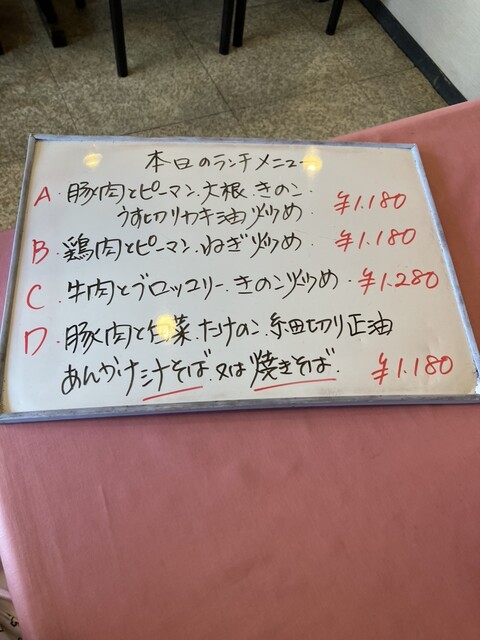 本日のランチメニュー
A. 豚肉とピーマン.大根.きのこ.
うす切りカキ油炒め. ¥1.180
B. 鶏肉とピーマン.ねぎ炒め. ¥1.180
C. 牛肉とブロッコリー.きのこ炒め. ¥1.280
D. 豚肉と白菜.たけのこ.細切り正油
あんかけ汁そば.又は焼きそば. ¥1.180